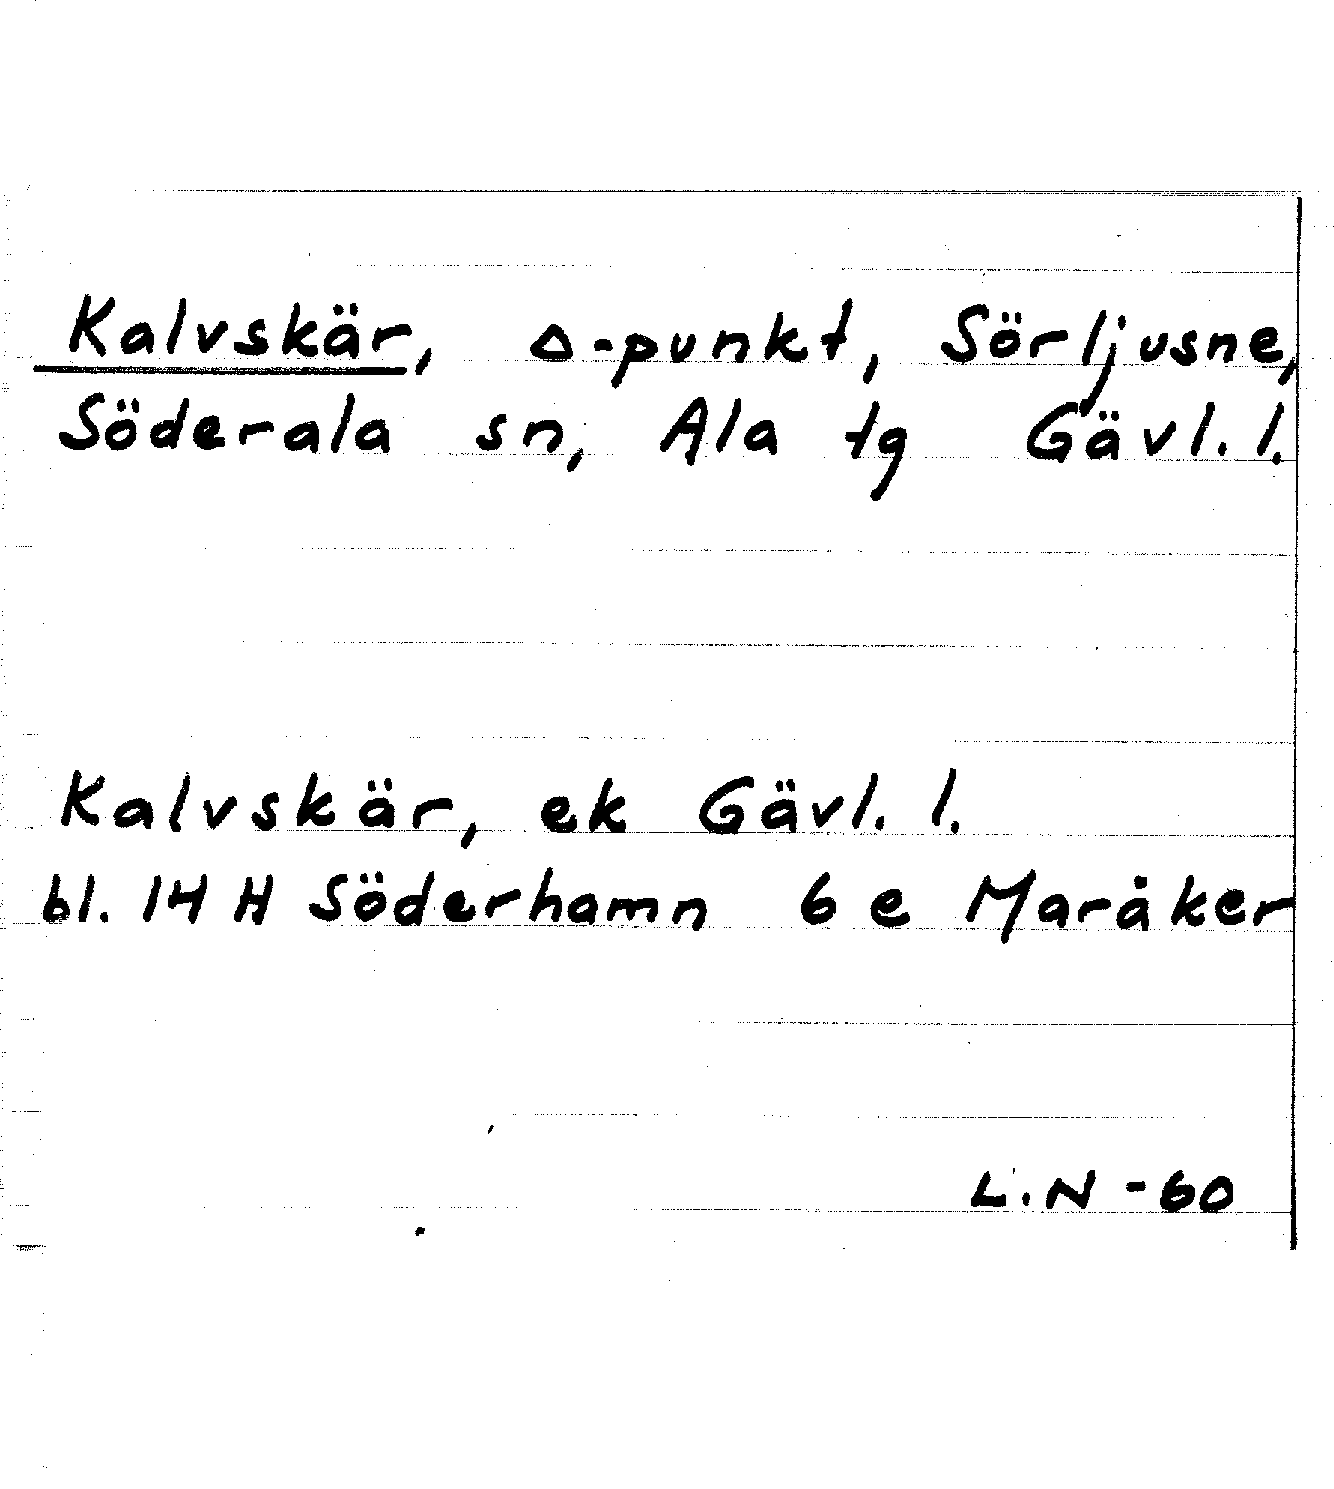 Kalvskär, Δ-punkt, Sörljusne,
Söderala sn, Ala tg Gävl. l.
Kalvskär, ek Gävl. l.
bl. 14 H Söderhamn 6 e Maråker
L.N -60